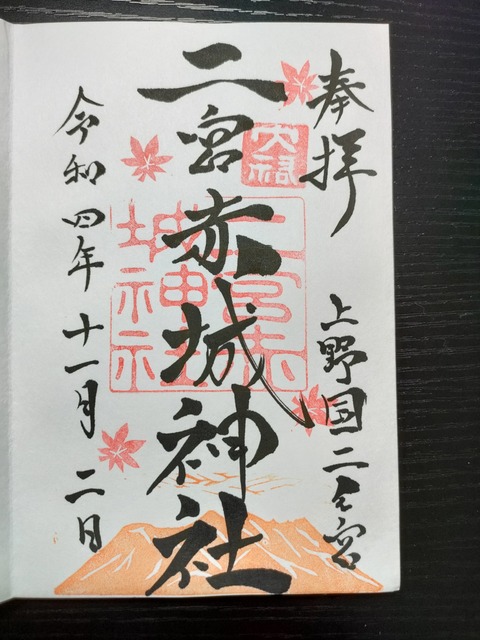 奉拝
上野国二之宮
二宮赤城神社
令和四年十一月二日
二宮赤
城神社